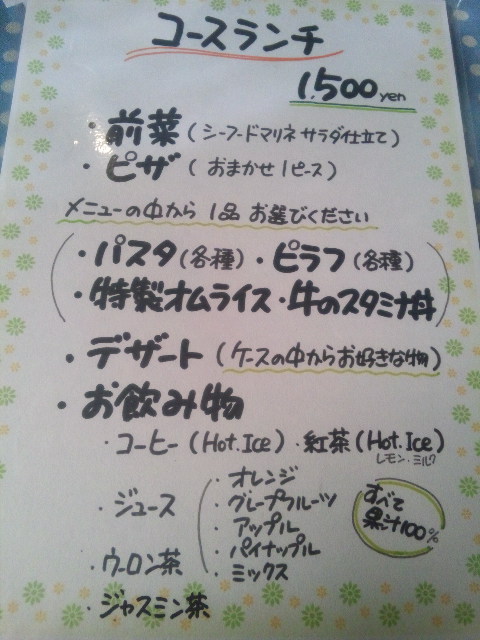 コースランチ
1,500 yen
・前菜(シーフードマリネ サラダ仕立て)
・ピザ(おまかせ1ピース)
メニューの中から 1品 お選びください
・パスタ(各種)・ピラフ(各種)
・特製オムライス・牛のスタミナ丼
・デザート(ケースの中からお好きな物)
・お飲み物
・コーヒー(Hot.Ice)・紅茶(Hot.Ice)
レモン・ミルク
・ジュース
・オレンジ
・グレープフルーツ
・アップル
・パイナップル
・ミックス
すべて
果汁100%
・ウーロン茶
・ジャスミン茶